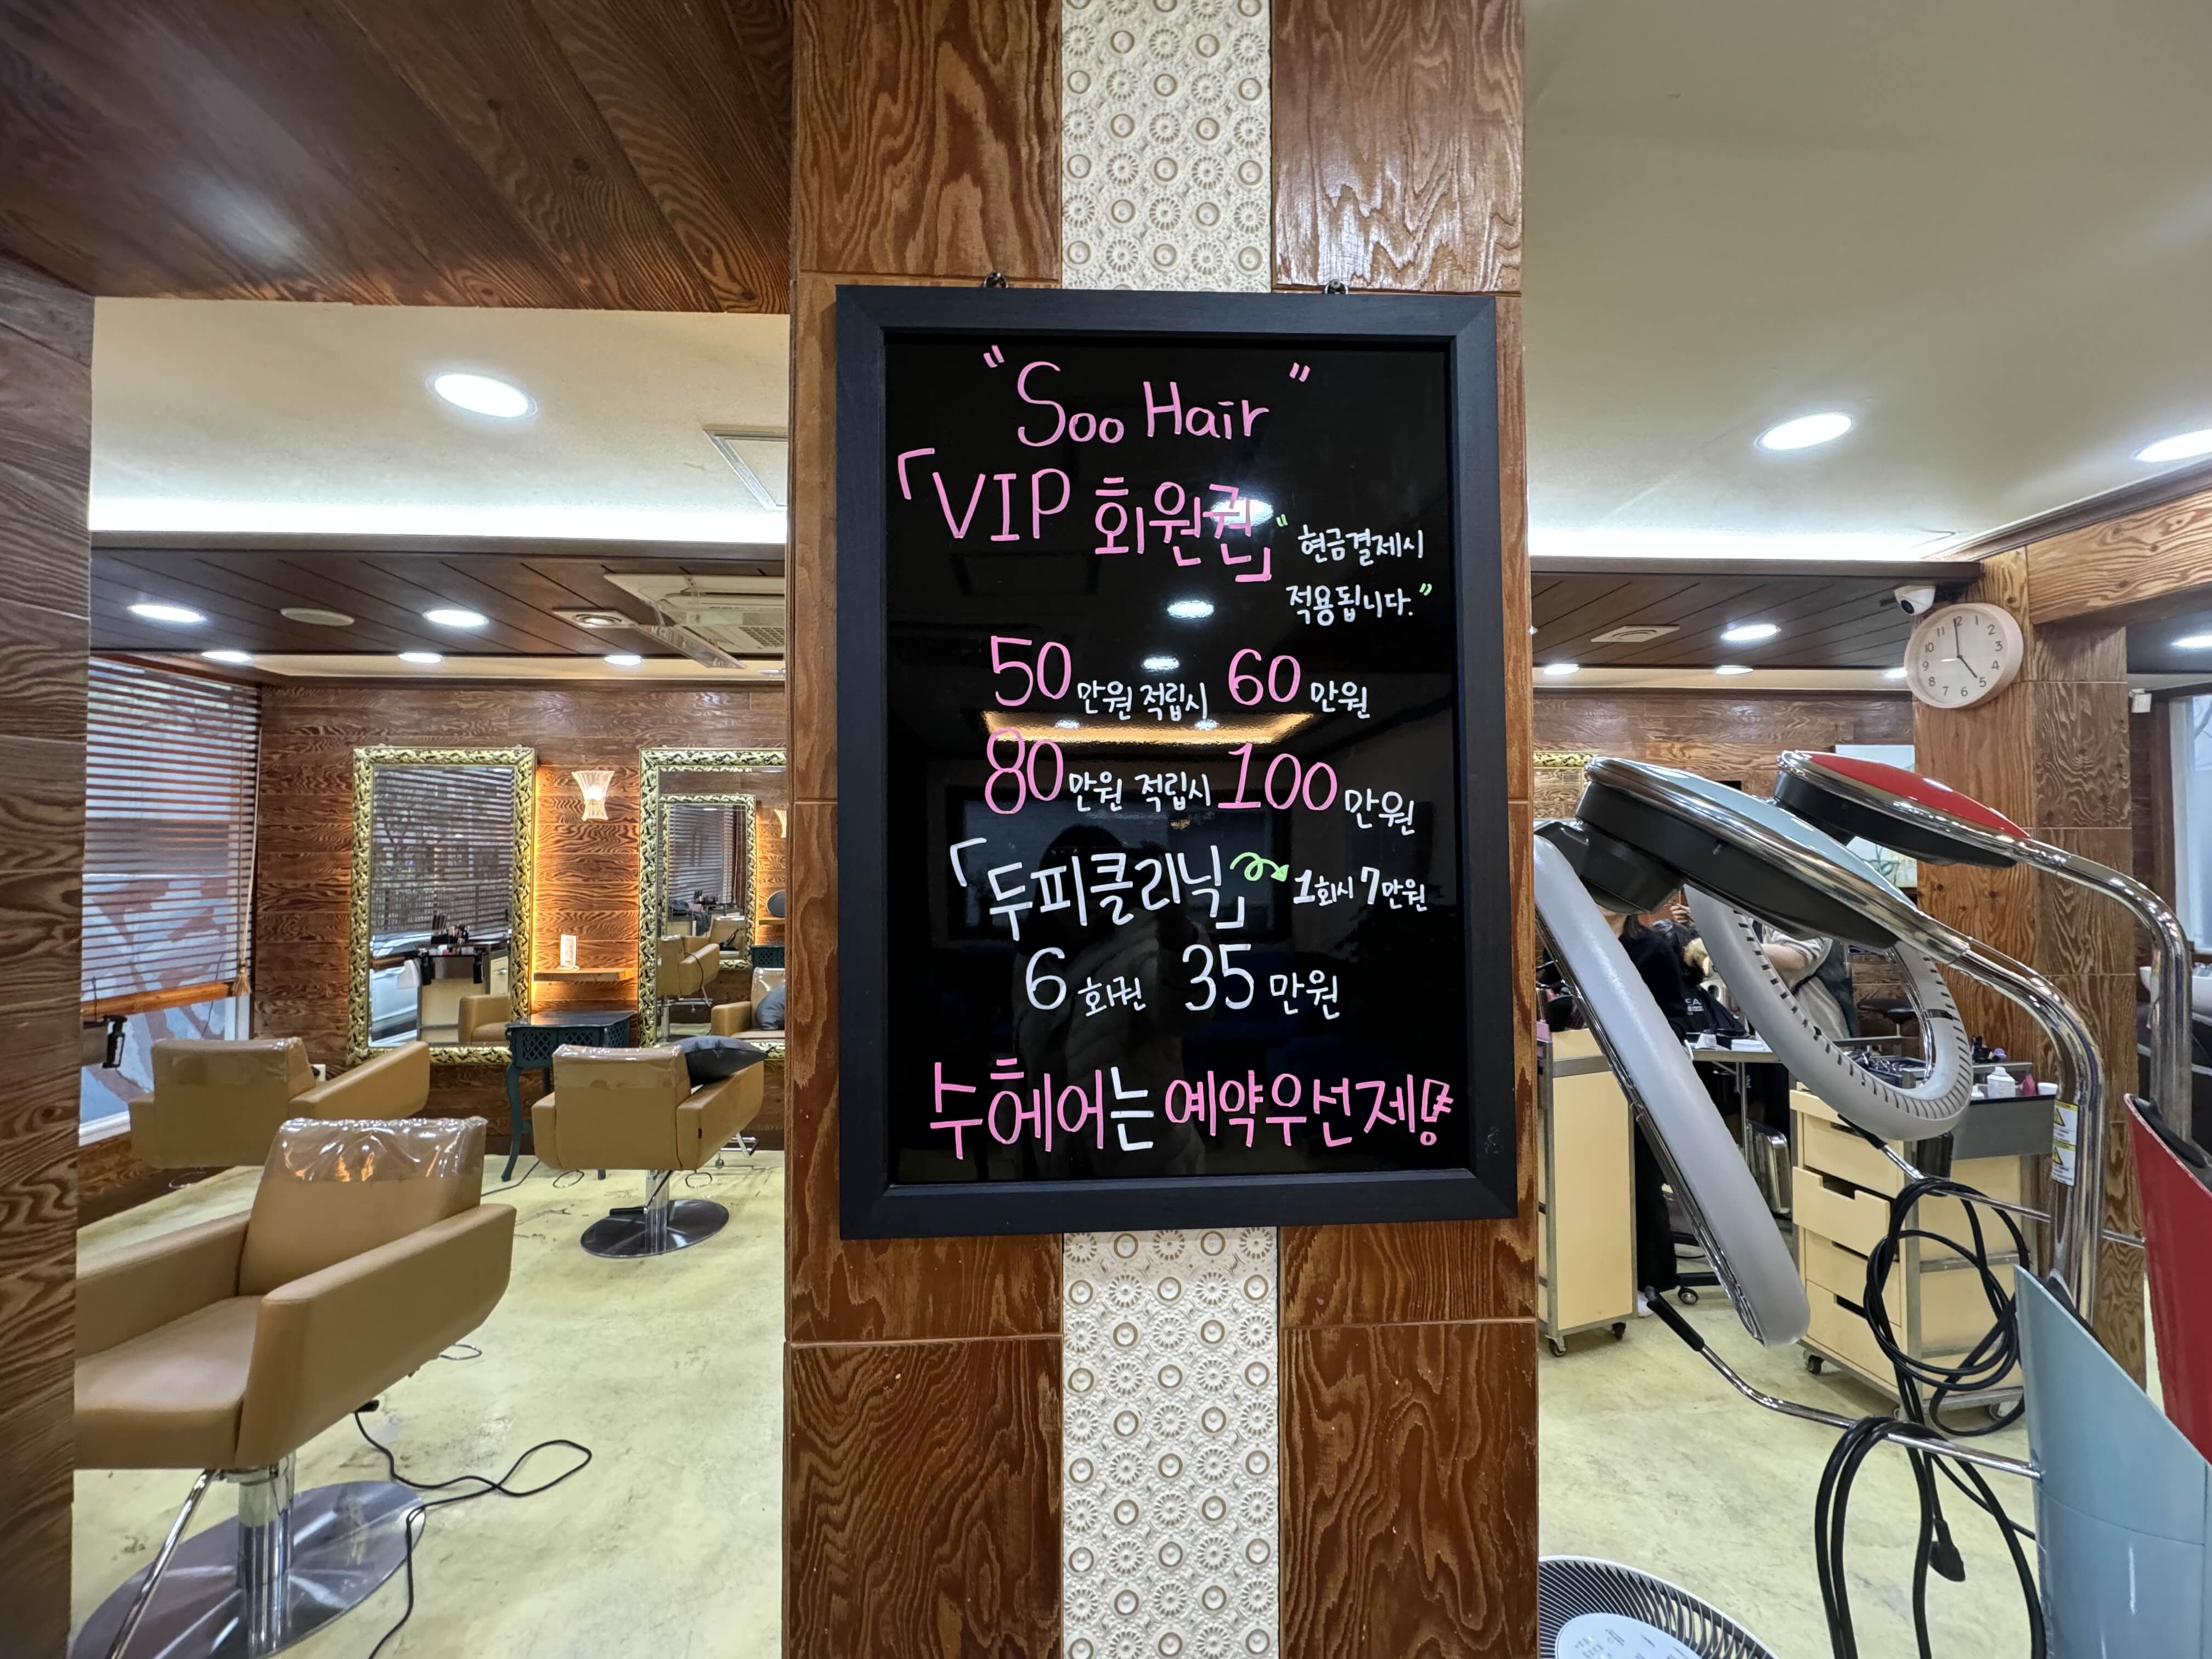 " Soo Hair "
「VIP 회원권」
" 현금결제시
적용됩니다."
50만원 적립시 60만원
80만원 적립시 100만원
「두피클리닉」 1회시 7만원
6회권 35만원
수헤어는 예약우선제!
11 12 1 2 3 4 5 6 7 8 9 10